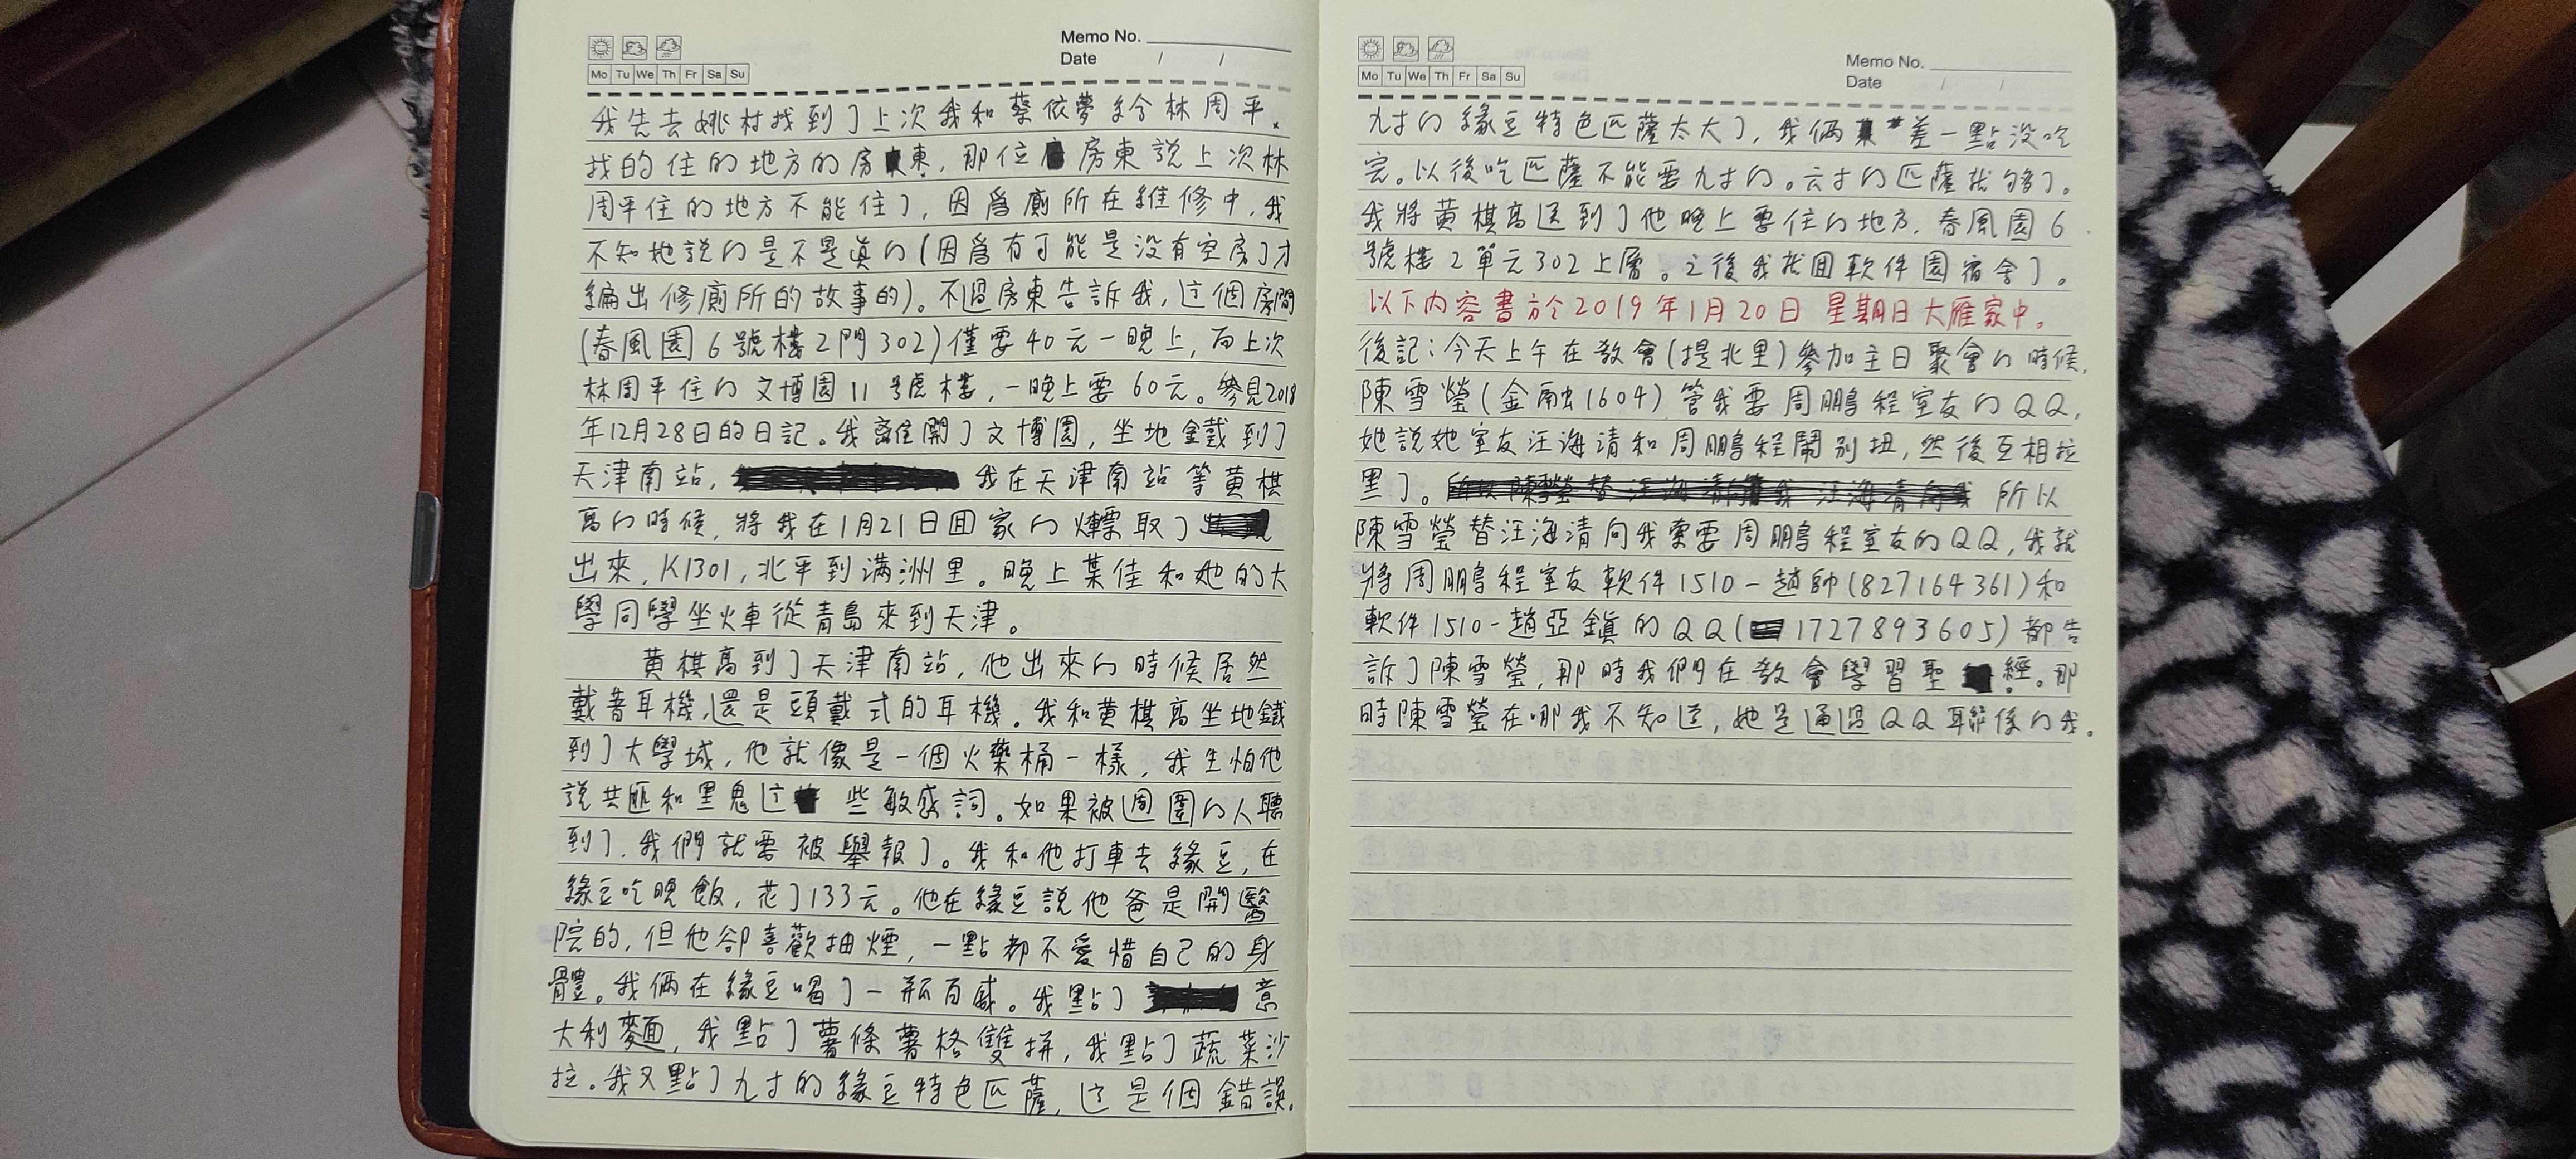 Memo No.
Date / /
Mo Tu We Th Fr Sa Su
我先去姚村找到了上次我和蔡依夢給林周平
找的住的地方的房東，那位房東說上次林
周平住的地方不能住了，因爲廁所在維修中，我
不知她說的是不是真的(因爲有可能是没有空房了才
編出修廁所的故事的)。不過房東告訴我，这個房間
(春風園6號樓2門302)僅要40元一晚上，而上次
林周平住的文博園11號樓，一晚上要60元。參見2018
年12月28日的日記。我離開了文博園，坐地鐵到了
天津南站，我在天津南站等黄棋
高的時候，將我在1月21日囬家的火車票取了
出來，K1301，北平到满洲里。晚上葉佳和她的大
學同學坐火車從青島來到天津。
黄棋高到了天津南站，他出來的時候居然
戴着耳機，還是頭戴式的耳機。我和黄棋高坐地鐵
到了大學城，他就像是一個火藥桶一樣，我生怕他
說共匪和黑鬼这些敏感詞。如果被週圍的人聽
到了，我們就要被舉報了。我和他打車去緣豆，在
緣豆吃晚飯，花了133元。他在緣豆說他爸是開醫
院的，但他卻喜歡抽煙，一點都不愛惜自己的身
體。我倆在緣豆喝了一瓶百威。我點了意
大利麵，我點了薯條薯格雙拼，我點了蔬菜沙
拉。我又點了九寸的緣豆特色匹薩，这是個錯誤。
Memo No.
Date / /
Mo Tu We Th Fr Sa Su
九寸的緣豆特色匹薩太大了，我倆差一點没吃
完。以後吃匹薩不能要九寸的。六寸的匹薩就够了。
我將黄棋高送到了他晚上要住的地方，春風園6
號樓2單元302上層。之後我就囬軟件園宿舍了。
以下内容書於2019年1月20日 星期日大雁家中。
後記：今天上午在教會(堤北里)參加主日聚會的時候，
陳雪瑩(金融1604)管我要周鵬程室友的QQ，
她說她室友汪海清和周鵬程鬧别扭，然後互相拉
黑了。所以
陳雪瑩替汪海清向我索要周鵬程室友的QQ，我就
將周鵬程室友軟件1510-趙帥(827164361)和
軟件1510-趙亞鎮的QQ(1727893605)都告
訴了陳雪瑩，那時我們在教會學習聖經。那
時陳雪瑩在哪我不知道，她是通過QQ聯係的我。